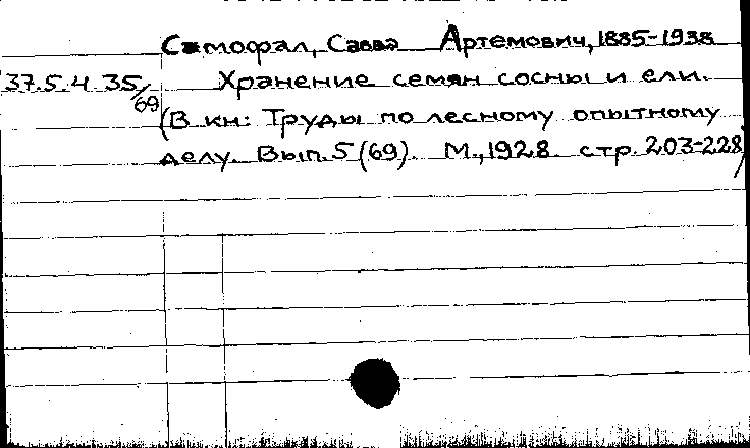 Самофал, Савва Артемович, 1885-1938
37.5.4.35/69 Хранение семян сосны и ели.
(В кн: Труды по лесному опытному
делу. Вып. 5 (69). М., 1928. стр. 203-228)